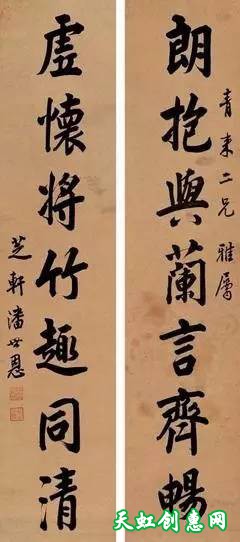 青来二兄 雅属
朗抱與蘭言齊暢
虛懷將竹趣同清
芝軒潘世恩
天虹创意网